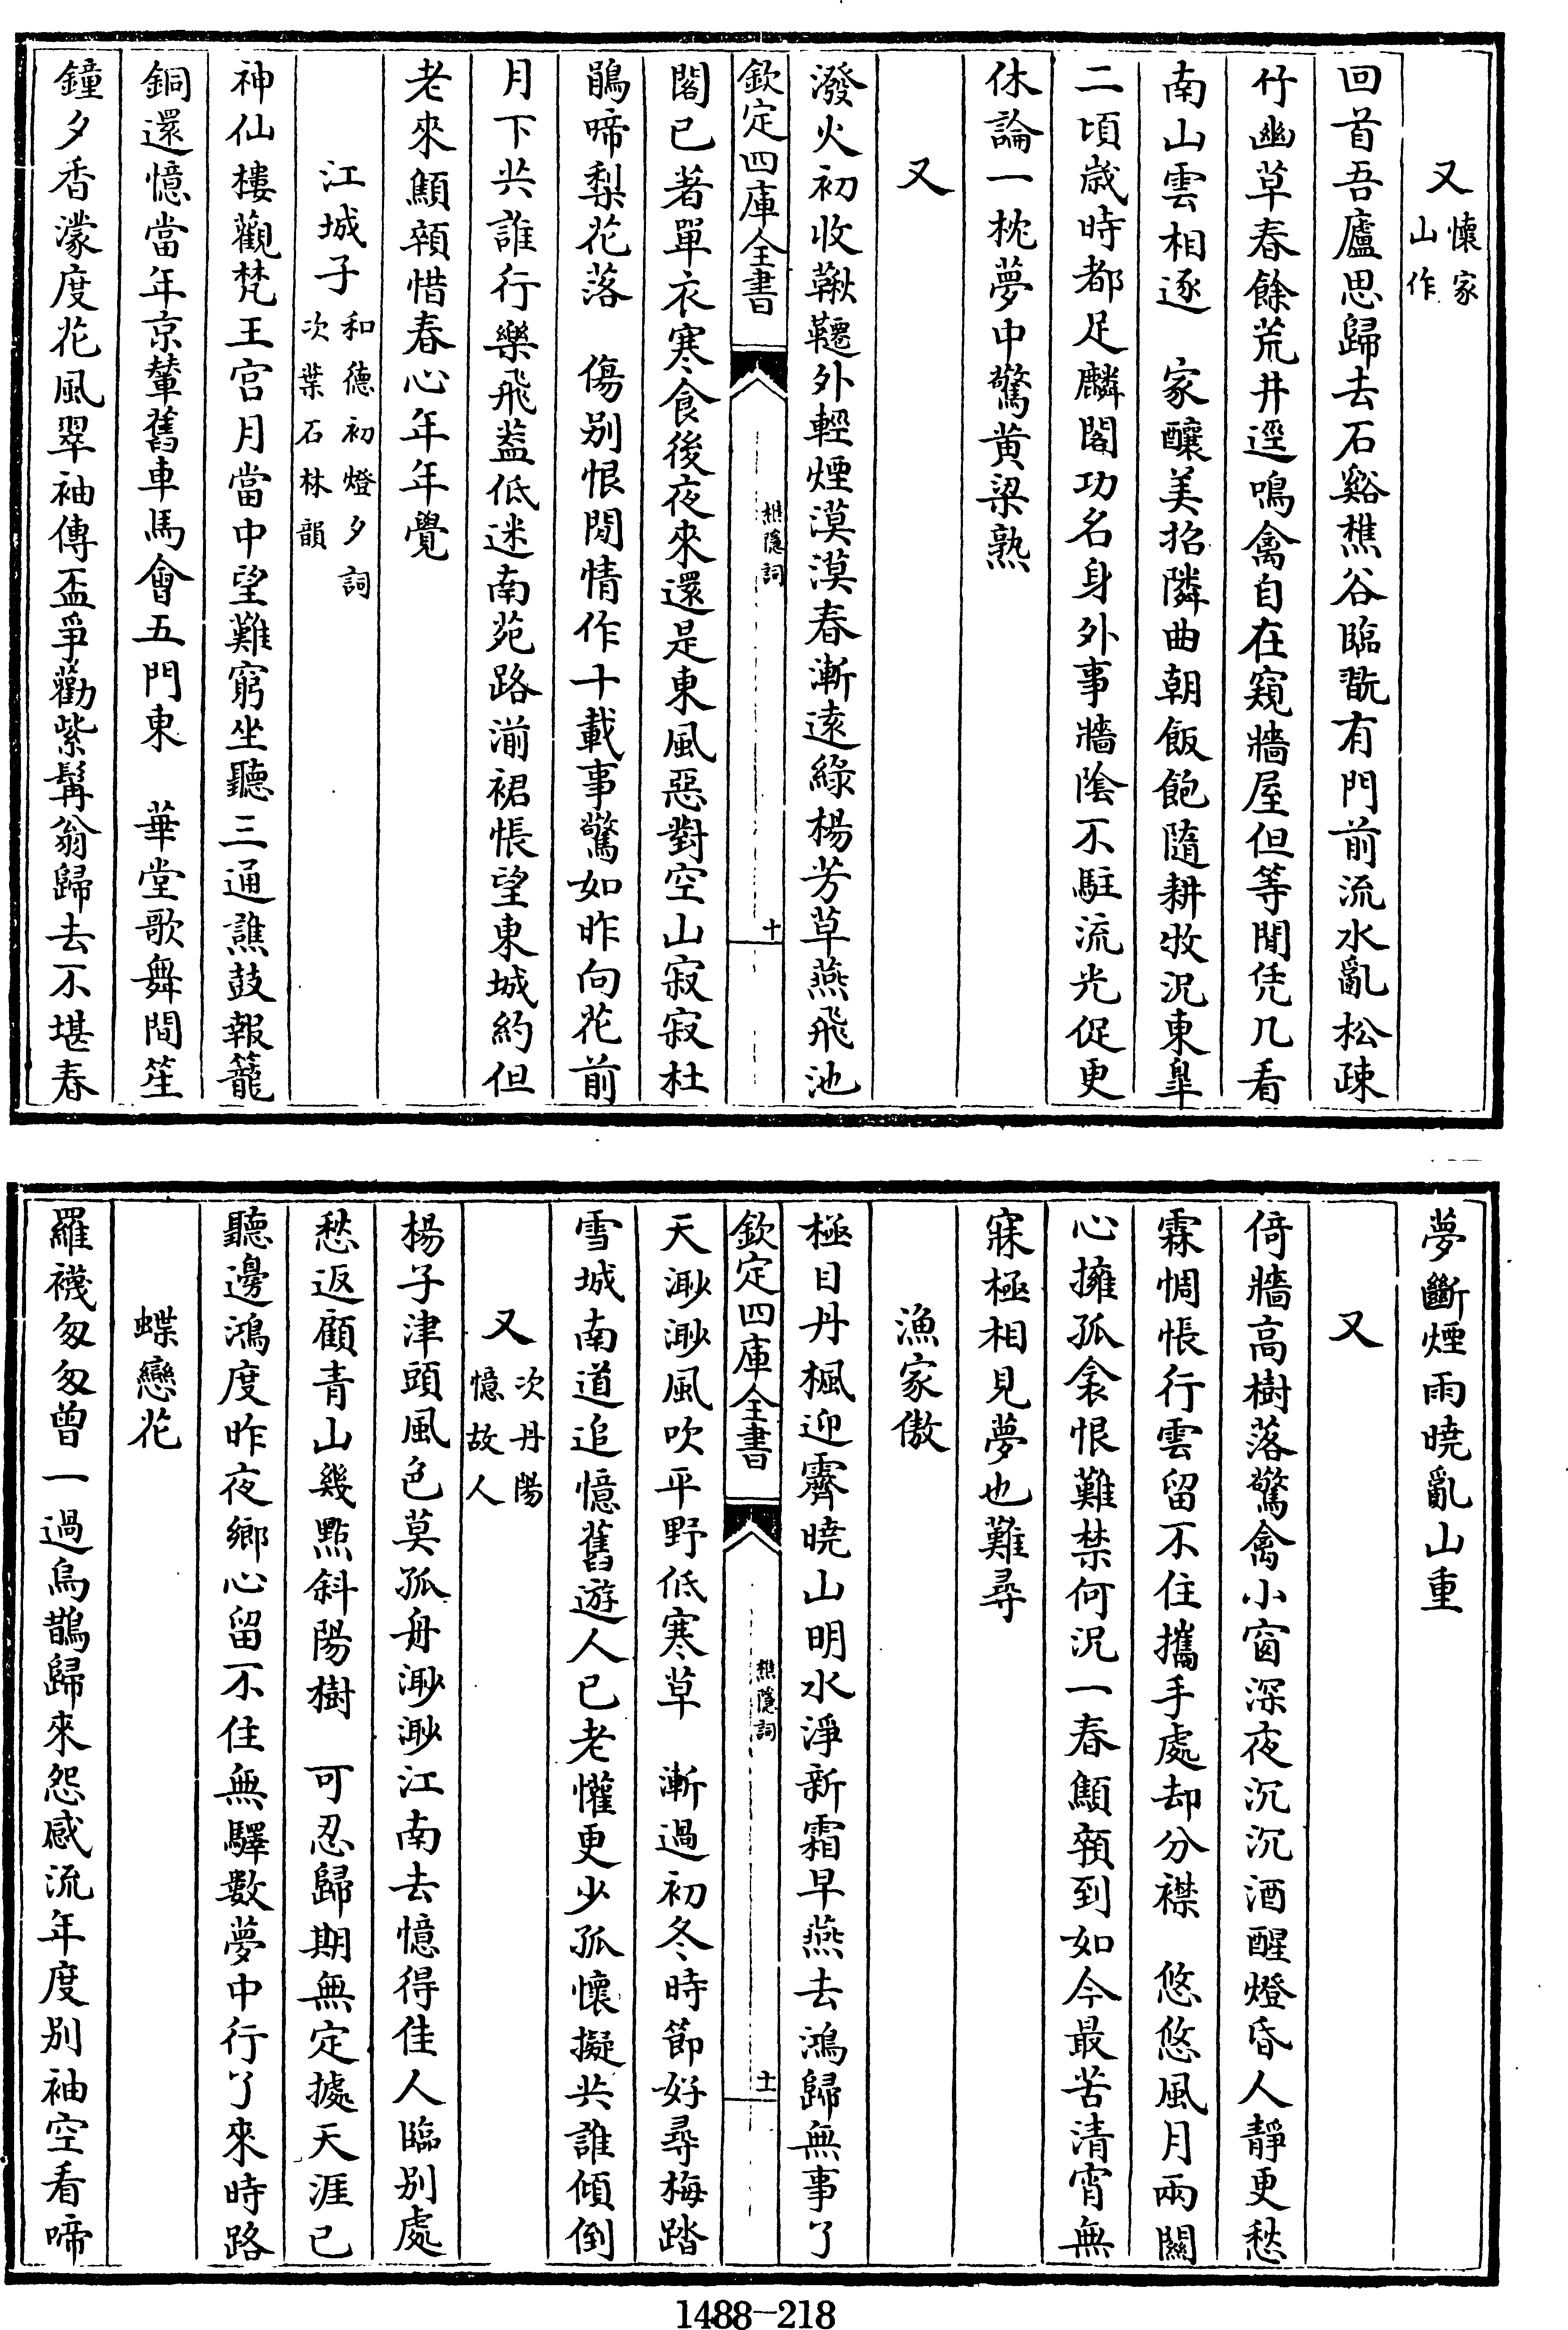 又懷家山作
回首吾廬思歸去石谿樵谷臨翫有門前流水亂松疎
竹幽草春餘荒井逕鳴禽自在窺牆屋但等閒凭几看
南山雲相逐　家釀美招隣曲朝飯飽隨耕牧況東臯
二頃歲時都足麟閣功名身外事牆陰不駐流光促更
休論一枕夢中驚黄梁熟
又
潑火初收鞦韆外輕煙漠漠春漸遠綠楊芳草燕飛池
欽定四庫全書
樵隱詞
十
閣已著單衣寒食後夜來還是東風惡對空山寂寂杜
鵑啼梨花落　傷别恨閒情作十載事驚如昨向花前
月下共誰行樂飛葢低迷南苑路湔裙悵望東城約但
老來顦顇惜春心年年覺
江城子和德初燈夕詞次葉石林韻
神仙樓觀梵王宫月當中望難窮坐聽三通譙鼓報籠
銅還憶當年京輦舊車馬會五門東　華堂歌舞間笙
鐘夕香濛度花風翠袖傳盃爭勸紫髯翁歸去不堪春
夢斷煙雨曉亂山重
又
倚牆高樹落驚禽小窗深夜沉沉酒醒燈昏人靜更愁
霖惆悵行雲留不住攜手處却分襟　悠悠風月兩關
心擁孤衾恨難禁何況一春顦顇到如今最苦清宵無
寐極相見夢也難尋
漁家傲
極目丹楓迎霽曉山明水淨新霜早燕去鴻歸無事了
欽定四庫全書
樵隱詞
十一
天渺渺風吹平野低寒草　漸過初冬時節好尋梅踏
雪城南道追憶舊遊人已老懽更少孤懷擬共誰傾倒
又次丹陽憶故人
楊子津頭風色莫孤舟渺渺江南去憶得佳人臨别處
愁返顧青山幾點斜陽樹　可忍歸期無定據天涯已
聽邊鴻度昨夜鄉心留不住無驛數夢中行了來時路
蝶戀花
羅襪匆匆曾一過烏鵲歸來怨感流年度别袖空看啼
1488-218